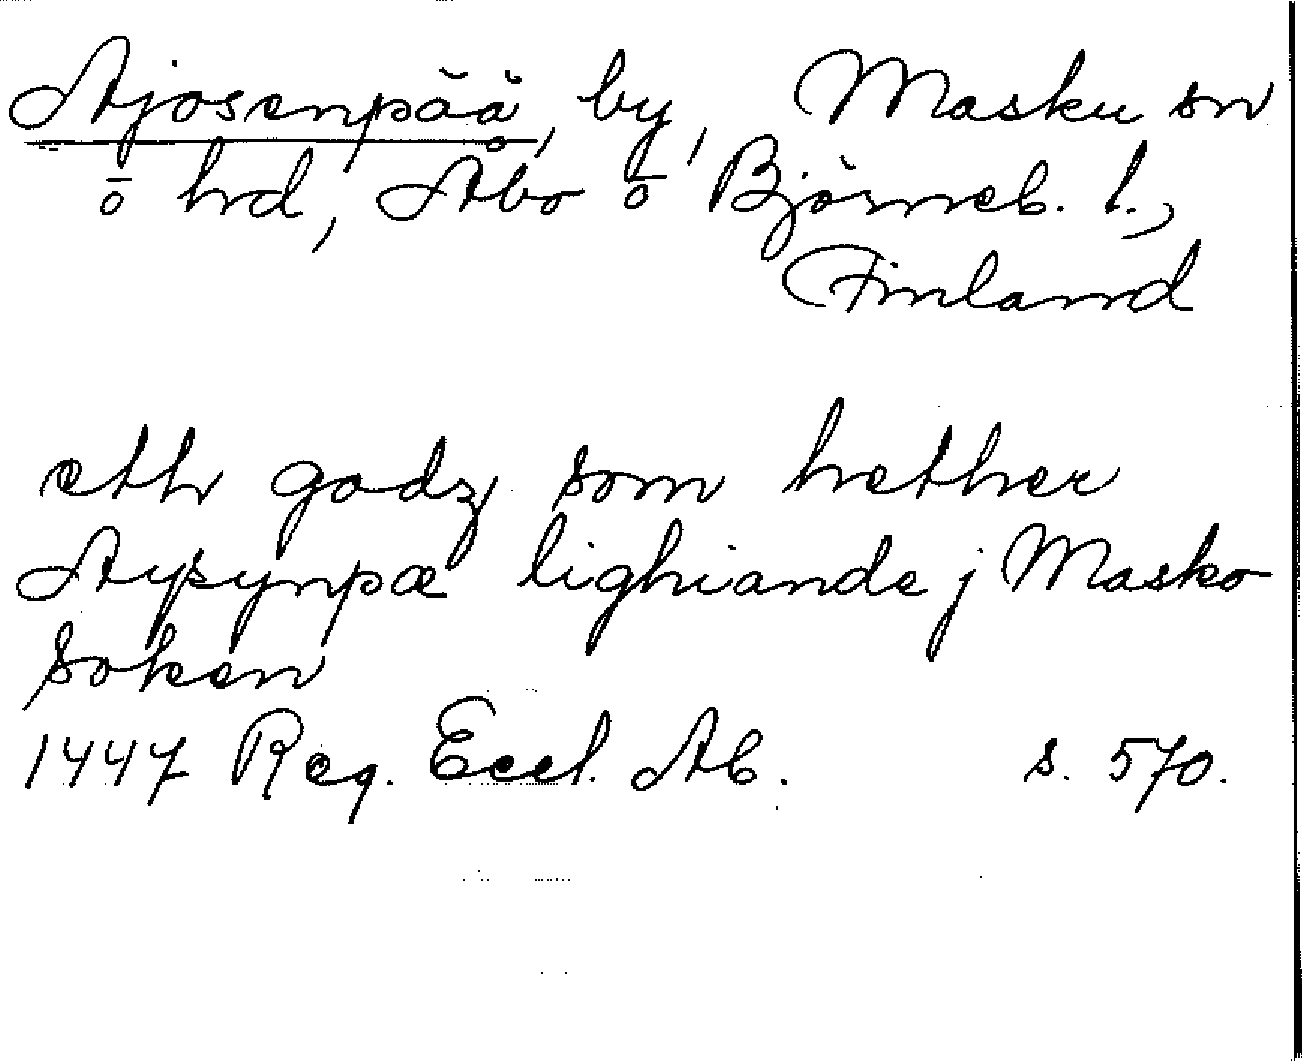 Ajosenpää, by, Masku sn
o hd, Åbo o Björneb. l.,
Finland
eth godz som hether
Aysynpæ lighiande j Masko
soken
1447 Reg. Eccl. Ab. s. 570.